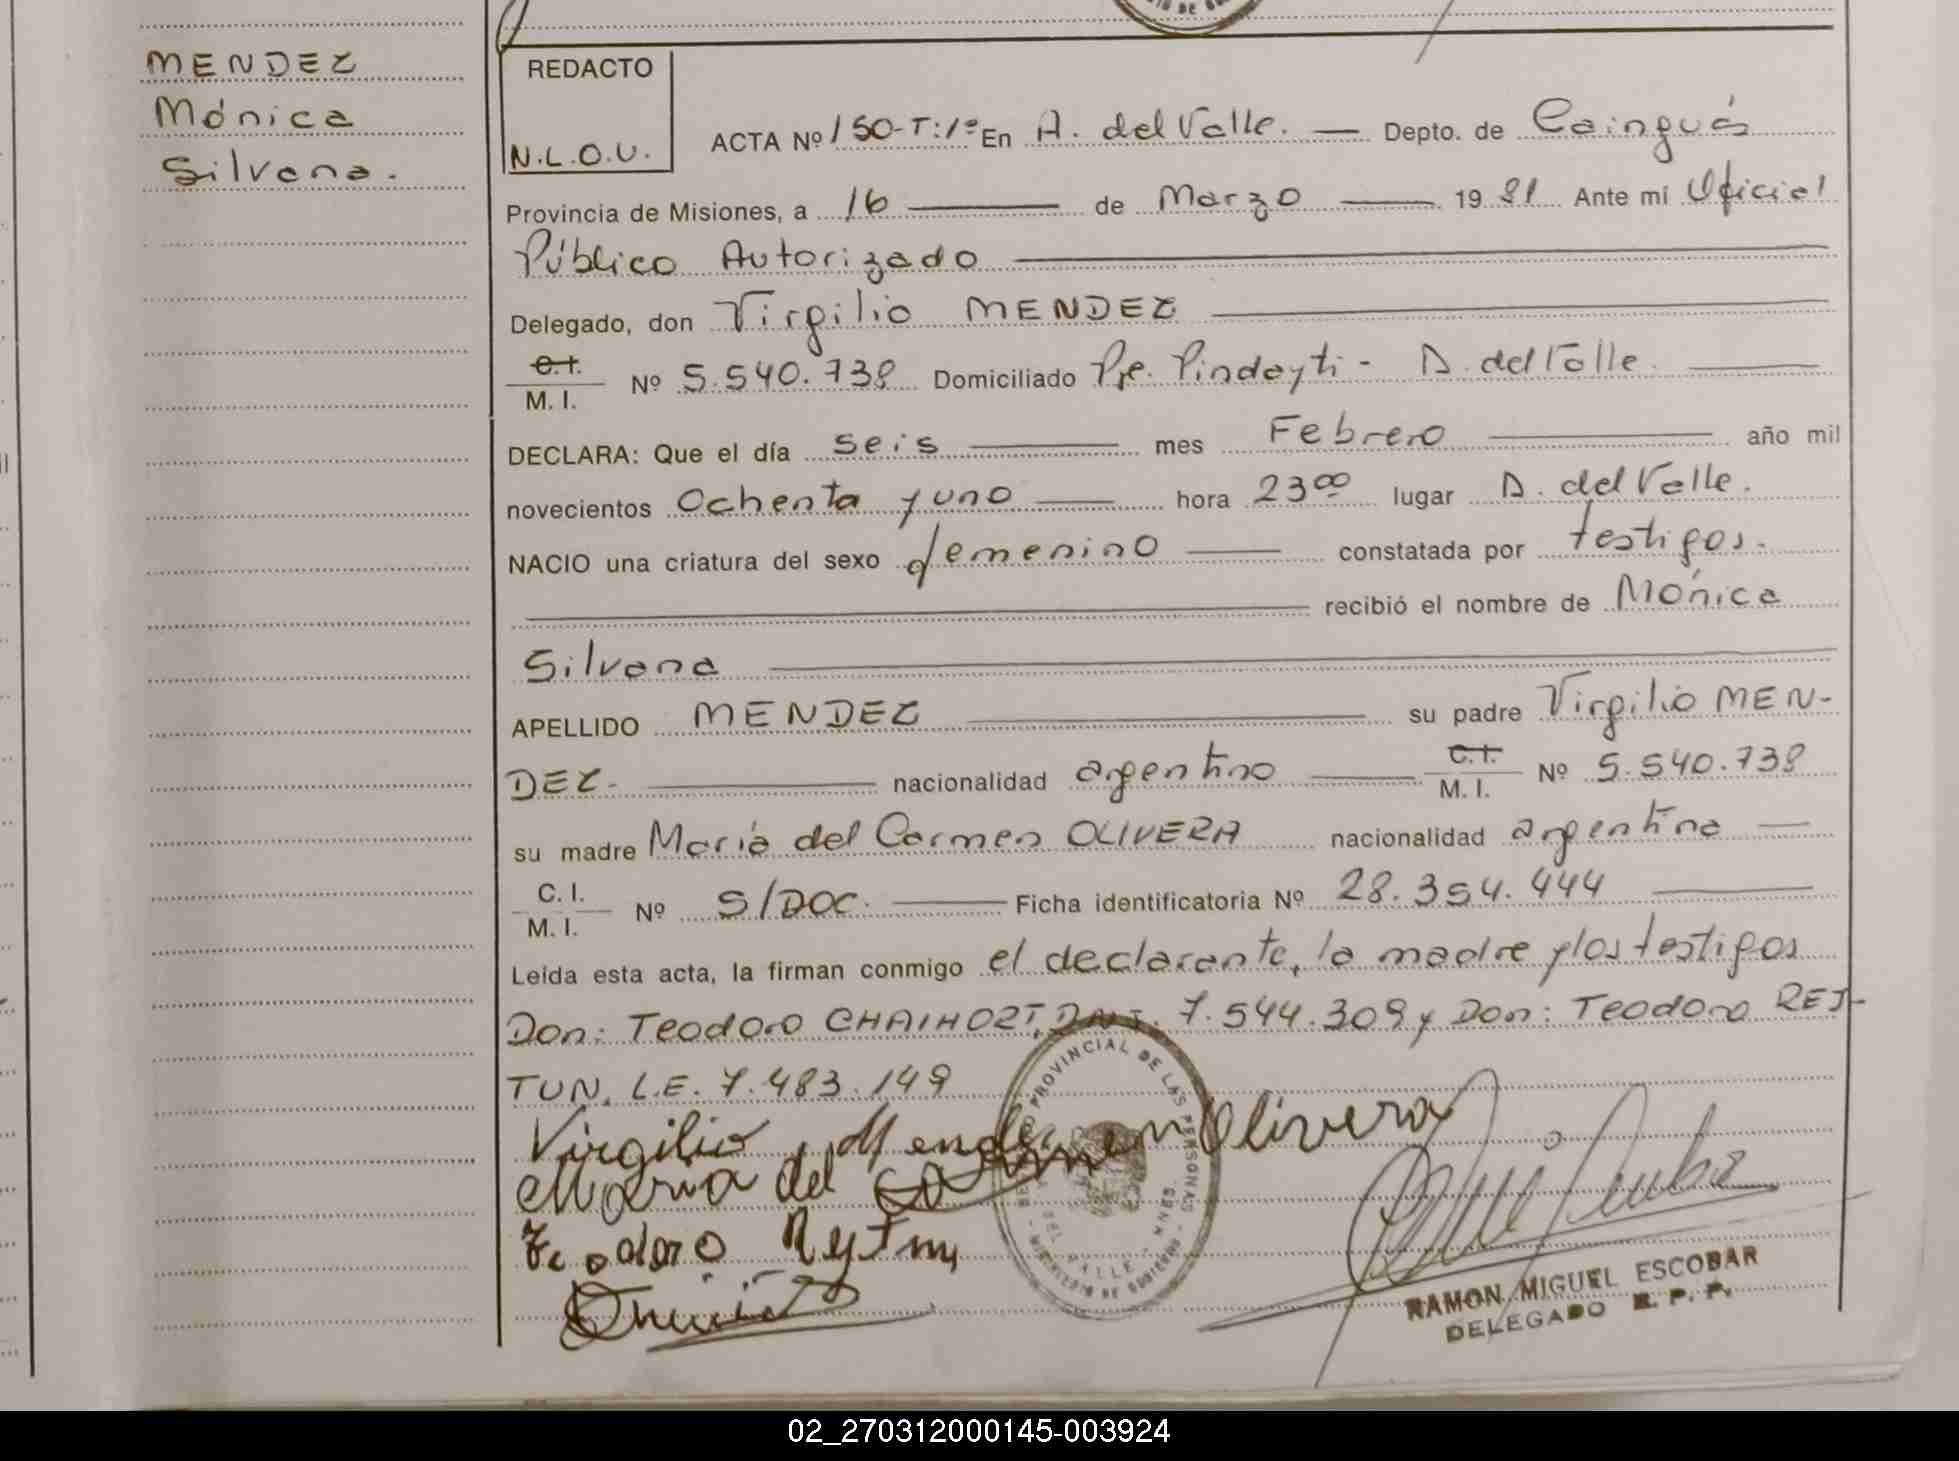 MENDEZ
Mónica
Silvana.
REDACTO
N.L.O.U.
ACTA Nº 150-T:1º En A. del Valle. — Depto. de Cainguás
Provincia de Misiones, a 16 — de Marzo — 1981 Ante mí Oficial
Público Autorizado
Delegado, don Virgilio MENDEZ
C.I.
M. I. Nº 5.540.738 Domiciliado Pje. Pindayti - A. del Valle.
DECLARA: Que el día seis — mes Febrero — año mil
novecientos Ochenta y uno — hora 23⁰⁰ lugar A. del Valle.
NACIO una criatura del sexo femenino — constatada por testigos.
— recibió el nombre de Mónica
Silvana
APELLIDO MENDEZ — su padre Virgilio MEN-
DEZ. — nacionalidad argentino — C.I. M. I. Nº 5.540.738
su madre María del Carmen OLIVERA nacionalidad argentina —
C. I.
M. I. Nº S/DOC. — Ficha identificatoria Nº 28.354.444 —
Leída esta acta, la firman conmigo el declarante, la madre y los testigos
Don: Teodoro CHAIHORT, D.N.I. 7.544.309 y Don: Teodoro REJ-
TUN. L.E. 7.483.149
PROVINCIAL DE LAS PERSONAS
DEL VALLE - MNES.
MINISTERIO DE GOBIERNO
Virgilio Mendez
Maria del Carmen Olivera
Teodoro
RAMON MIGUEL ESCOBAR
DELEGADO R. P. P.
02_270312000145-003924